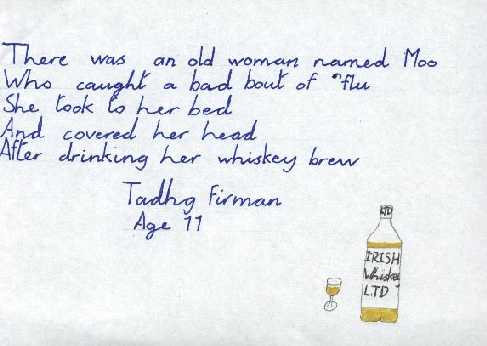 There was an old woman named Moo
Who caught a bad bout of 'flu
She took to her bed
And covered her head
After drinking her whiskey brew
Tadhg Firman
Age 11
LTD
IRISH
Whiskey
LTD